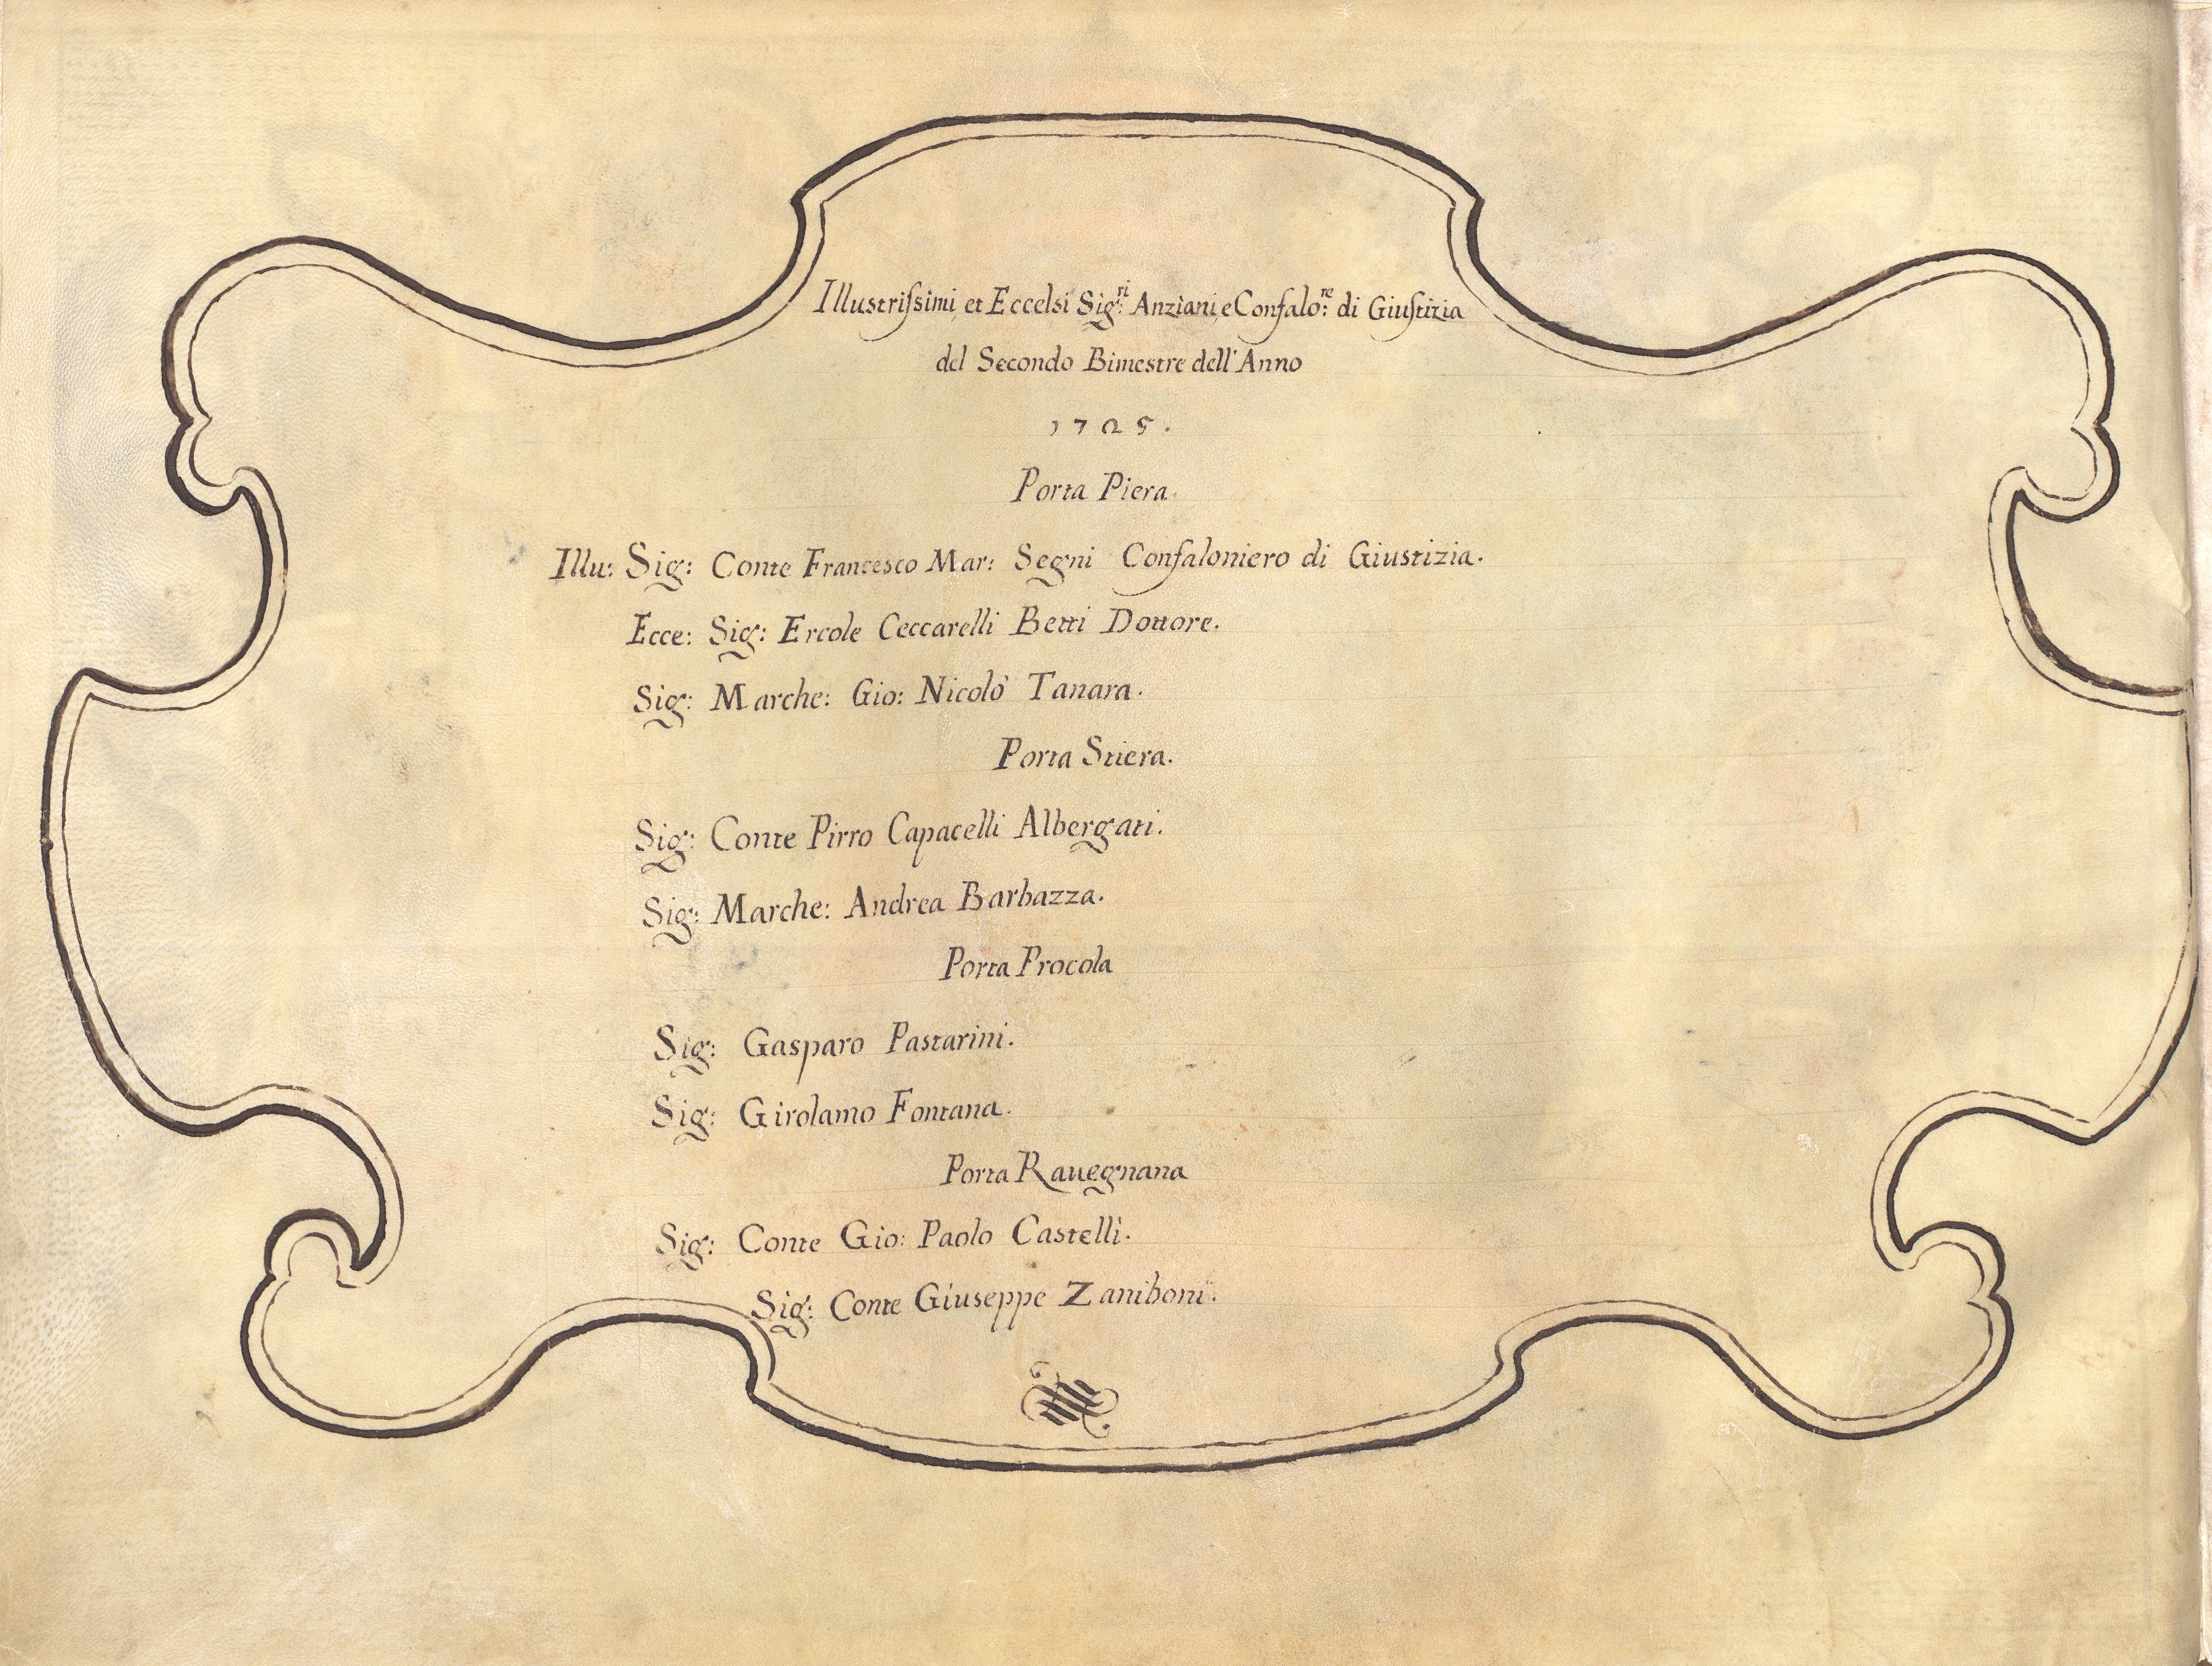 Illustriſsimi, et Eccelsi Sig:ri Anziani, e Confalo:re di Giuſtizia
del Secondo Bimestre dell'Anno
1725.
Porta Piera.
Illu: Sig: Conte Francesco Mar: Segni Confaloniero di Giustizia.
Ecce: Sig: Ercole Ceccarelli Betti Dottore.
Sig: Marche: Gio: Nicolò Tanara.
Porta Stiera.
Sig: Conte Pirro Capacelli Albergati.
Sig: Marche: Andrea Barbazza.
Porta Procola
Sig: Gasparo Pastarini.
Sig: Girolamo Fontana.
Porta Rauegnana
Sig: Conte Gio: Paolo Castelli.
Sig: Conte Giuseppe Zaniboni.